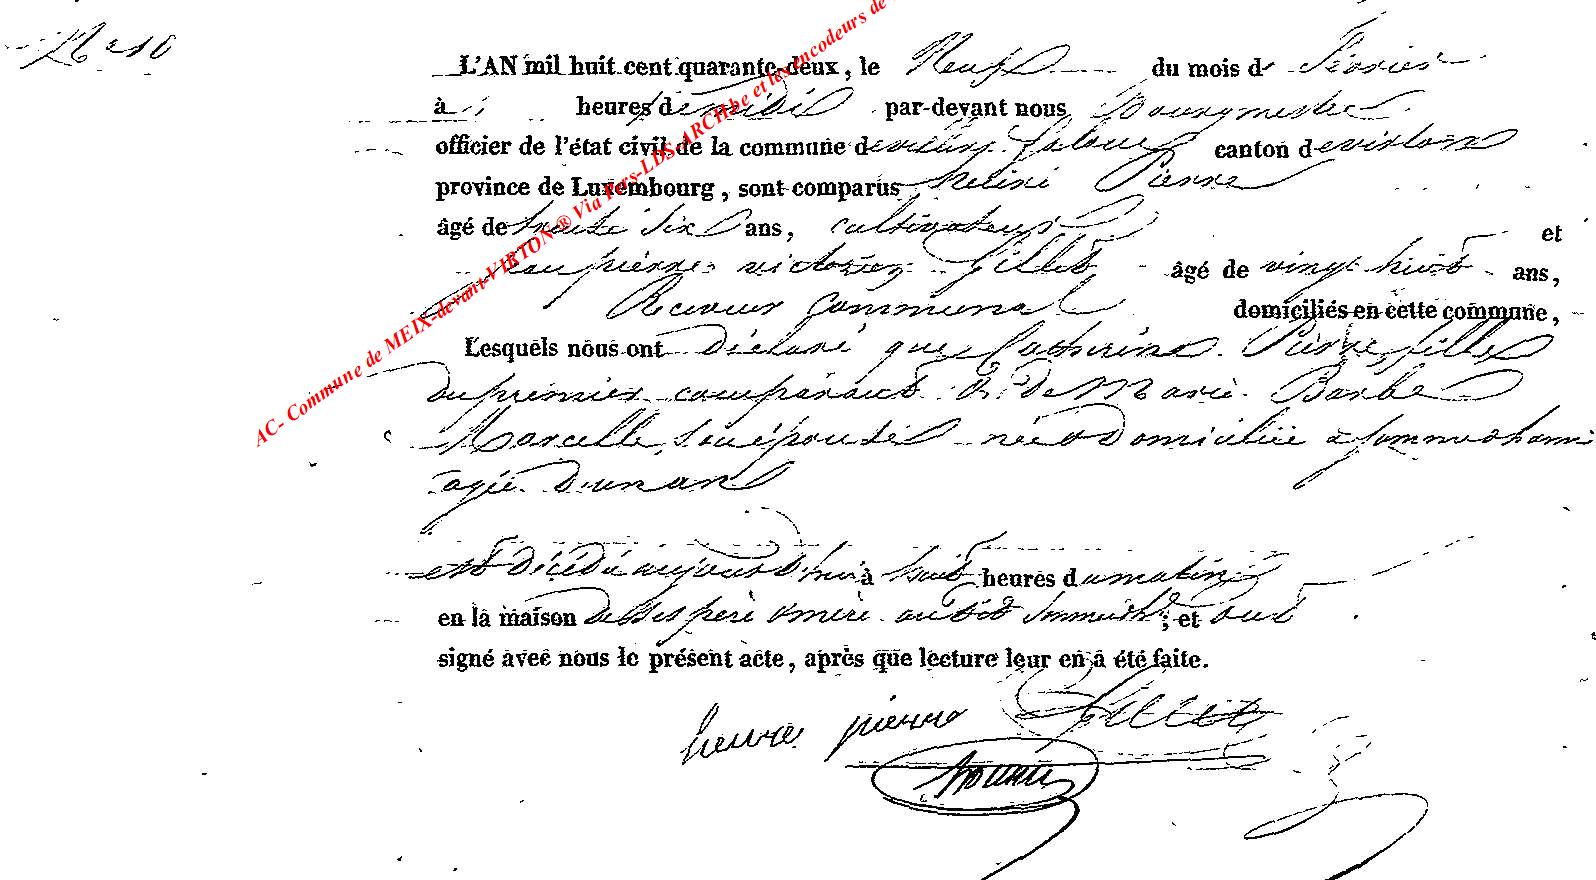 N° 10
L'AN mil huit cent quarante-deux, le Neuf du mois de Février
à heures de midi par-devant nous Bourgmestre
officier de l'état civil de la commune de villers la loue canton de virton
province de Luxembourg, sont comparus Pierre
âgé de trente six ans, cultivateur et
Jean pierre victorien Gillet âgé de vingt huit ans,
Receveur Communal domiciliés en cette commune,
Lesquels nous ont déclaré que Catherine Pierre, fille
du premier comparant & de Marie Barbe
Marcelle, son épouse née & domiciliée à Sommethonne
agée d'un an
est décédée aujourd'hui à huit heures du matin
en la maison de ses père & mère audit Sommeth ; et ont
signé avec nous le présent acte, après que lecture leur en a été faite.
pierre Gillet
AC- Commune de MEIX-devant-VIRTON ® Via Pers-LDS-ARCH.be et les encodeurs de